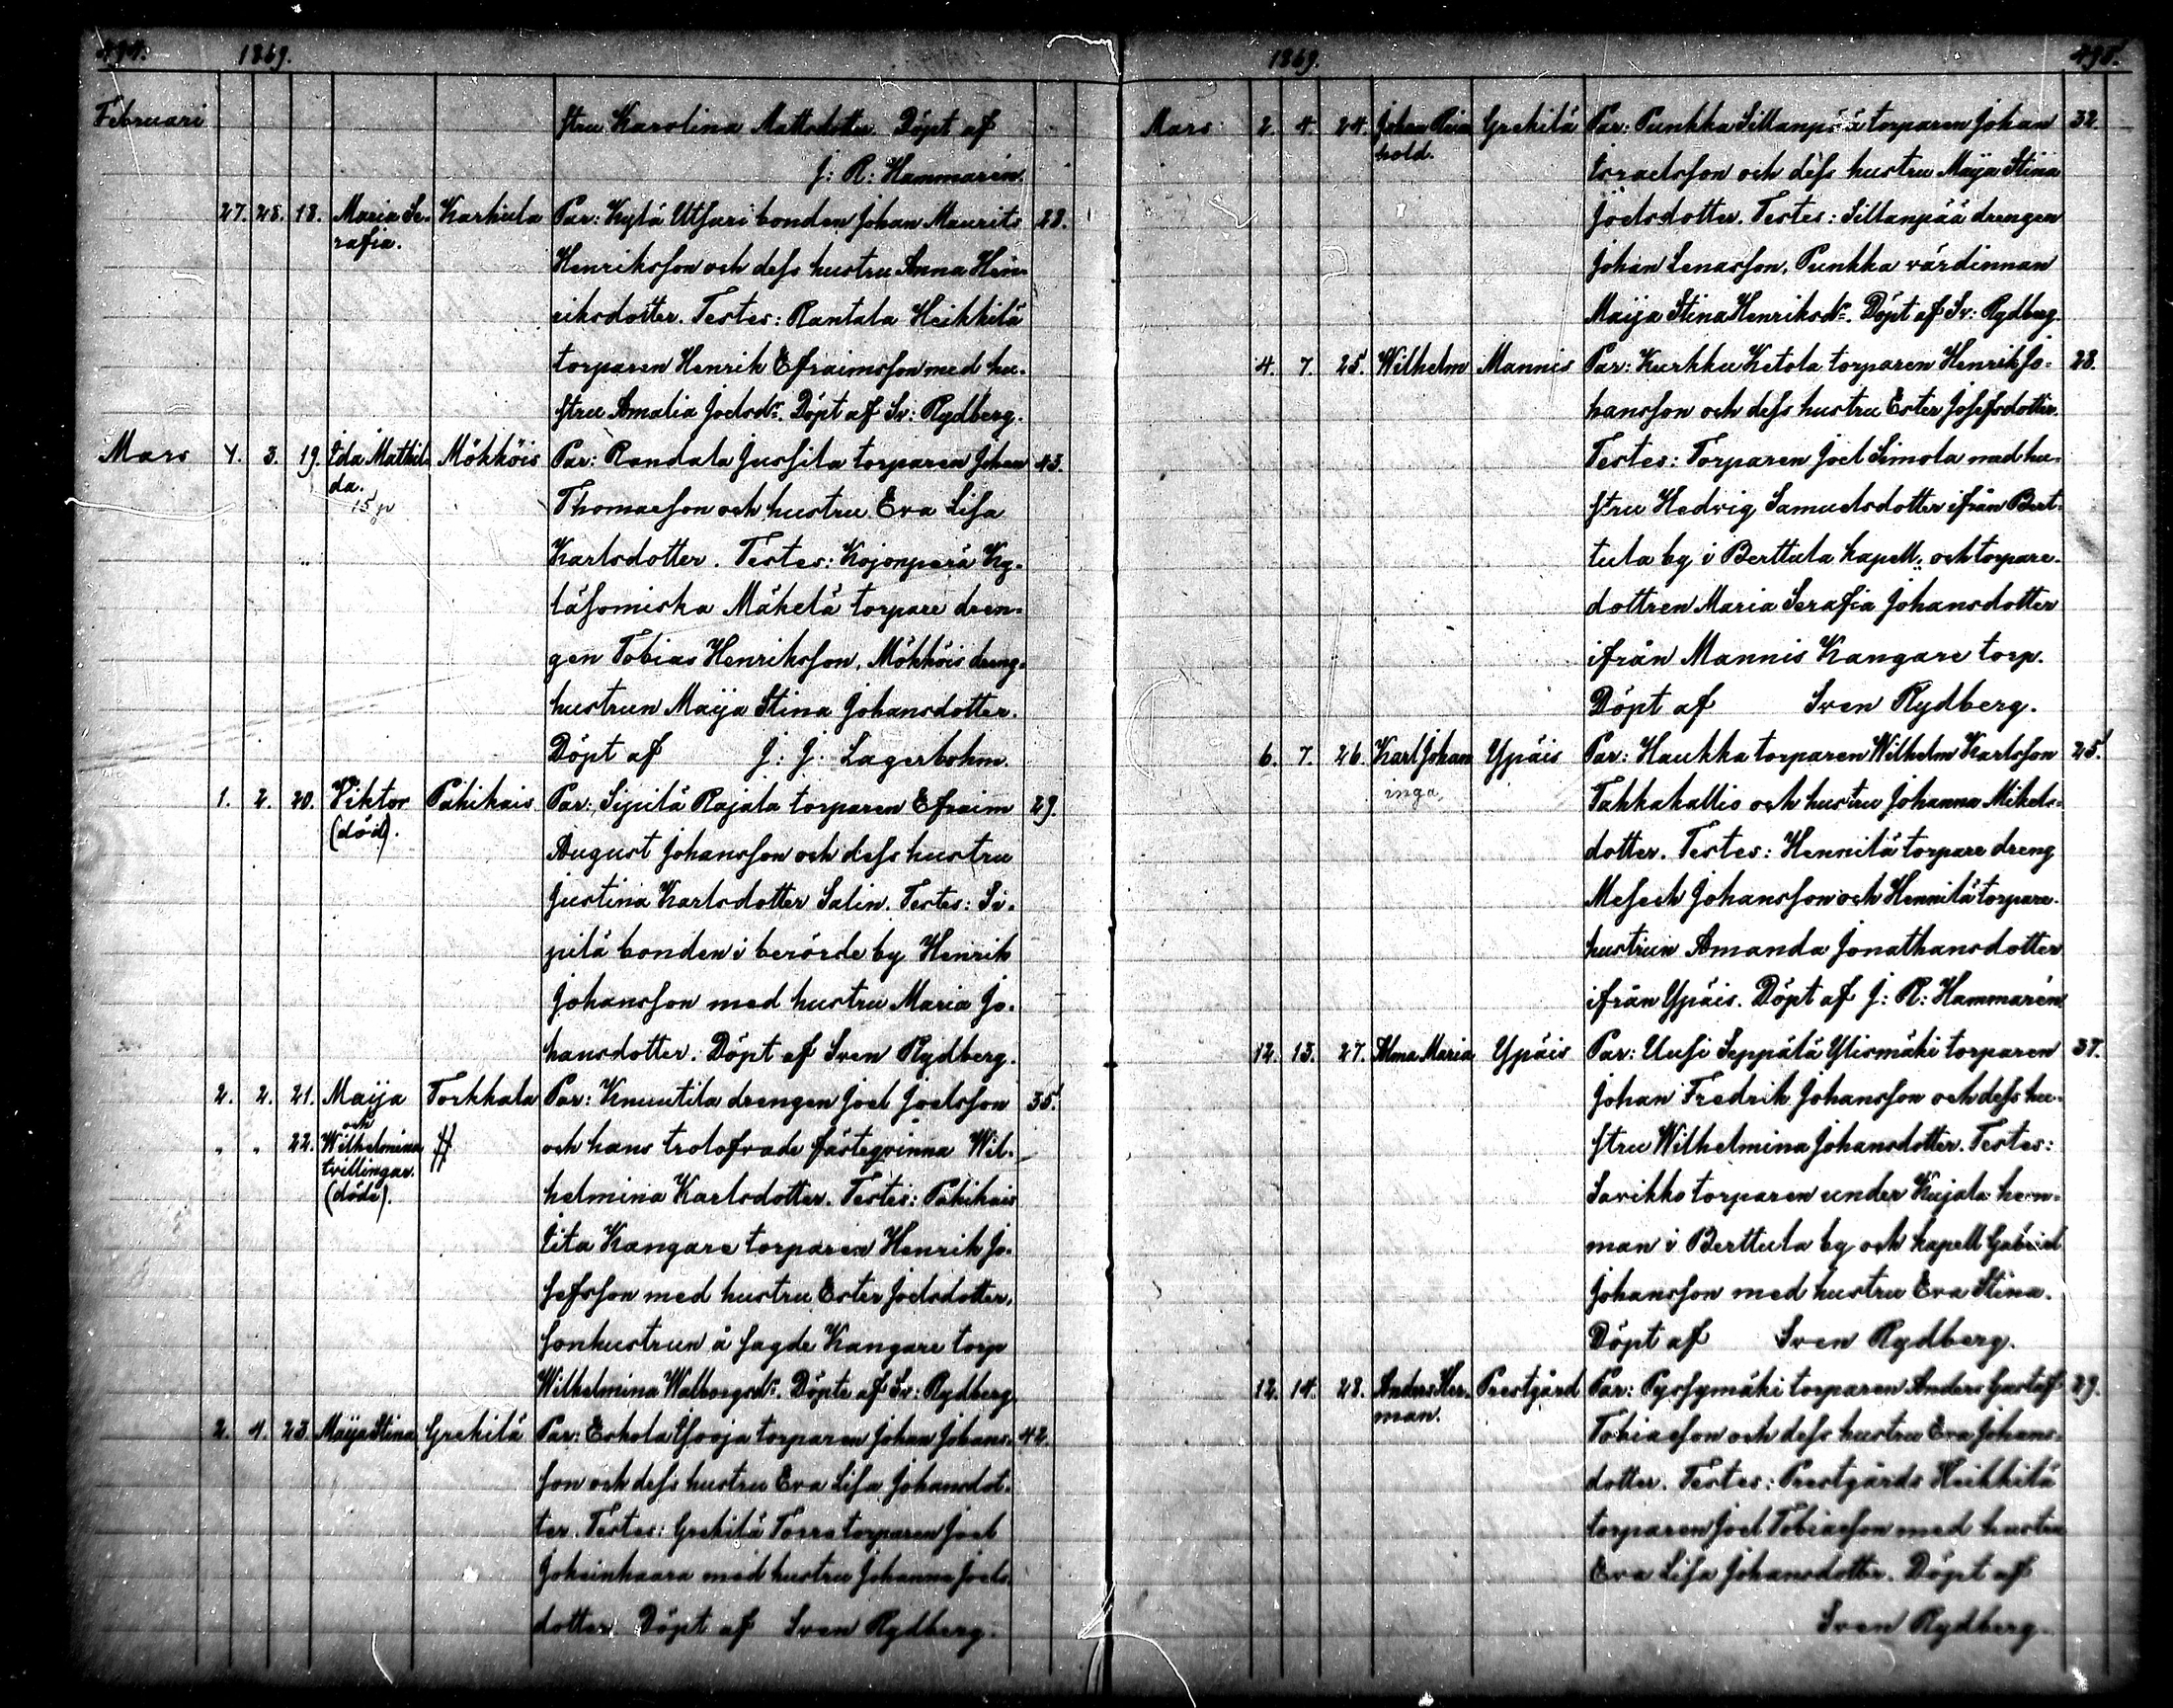 494. 1869.
Februari stru Karolina Mattsdotter. Döpt af
J: R: Hammarén.
27. 28. 18. Maria Se- Karhula Par: Kylä Utsuri bonden Johan Maurits 28.
rafia.
Henriksson och dess hustru Anna Hen-
riksdotter. Testes: Rantala Heikkilä
torparen Henrik Efraimsson med hu-
stru Amalia Joelsdr. Döpt af Sv: Rydberg.
Mars 1. 3. 19. Ida Mathil- Mökköis Par: Randala Jussila torparen Johan 43.
da.
15 p
Thomasson och hustru Eva Lisa
Karlsdotter. Testes: Kojonperä Ky-
läsomiska Mäkelä torpare dren-
gen Tobias Henriksson, Mökköis dreng-
hustrun Maija Stina Johansdotter.
Döpt af J: J: Lagerbohm.
1. 2. 20. Viktor Pahikais Par: Sipilä Rajala torparen Efraim 29.
(död).
August Johansson och dess hustru
Justina Karlsdotter Salin. Testes: Si-
pilä bonden i berörde by Henrik
Johansson med hustru Maria Jo-
hansdotter. Döpt af Sven Rydberg.
2. 2. 21. Maija Torkkala Par: Knuutila drengen Joel Joelsson 35.
och
" " 22. Wilhelmina # och hans trolofvade fästeqvinna Wil-
tvillingar.
(döde).
helmina Karlsdotter. Testes: Pahikais
Lita Kangare torparen Henrik Jo-
sefsson med hustru Ester Joelsdotter,
sonhustrun å sagde Kangare torp
Wilhelmina Walborgsdr. Döpte af Sv: Rydberg.
2. 4. 23. Maija Stina Grekilä Par: Eskola torparen Johan Johans- 42.
son och dess hustru Eva Lisa Johansdot-
ter. Testes: Grekilä Torra torparen Joel
med hustru Johanna Joels-
dotter. Döpt af Sven Rydberg.
1869. 495.
Mars 2. 4. 24. Johan Rein- Grekilä Par: Punkka Sillanpää torparen Johan 32.
hold.
Israelsson och dess hustru Maija Stina
Joelsdotter. Testes: Sillanpää drengen
Johan Lenasson, Punkka värdinnan
Maija Stina Henriksdr. Döpt af Sv: Rydberg.
4. 7. 25. Wilhelm Mannis Par: Kurkku Ketola torparen Henrik Jo- 28.
hansson och dess hustru Ester Josefsdotter.
Testes: Torparen Joel Simola med hu-
stru Hedvig Samuelsdotter ifrån Bert-
tula by i Berttula kapell, och torpare-
dottren Maria Serafia Johansdotter
ifrån Mannis Kangare torp.
Döpt af Sven Rydberg.
6. 7. 26. Karl Johan Ypäis Par: Haukka torparen Wilhelm Karlsson 25.
inga,
Takkakallio och hustru Johanna Mikels-
dotter. Testes: Hennilä torpare dreng
Mesech Johansson och Hennilä torpare-
hustrun Amanda Jonathansdotter
ifrån Ypäis. Döpt af J: R: Hammarén.
12. 13. 27. Alma Maria Ypäis Par: Uusi Seppälä Ylismäki torparen 37.
Johan Fredrik Johansson och dess hu-
stru Wilhelmina Johansdotter. Testes:
Savikko torparen under Kujala hem-
man i Berttula by och kapell Gabriel
Johansson med hustru Eva Stina.
Döpt af Sven Rydberg.
12. 14. 28. Anders Her- Prestgård Par: Pyssymäki torparen Anders Gustaf 29.
man.
Tobiasson och dess hustru Eva Johans-
dotter. Testes: Prestgårds Heikkilä
torparen Joel Tobiasson med hustru
Eva Lisa Johansdotter. Döpt af
Sven Rydberg.